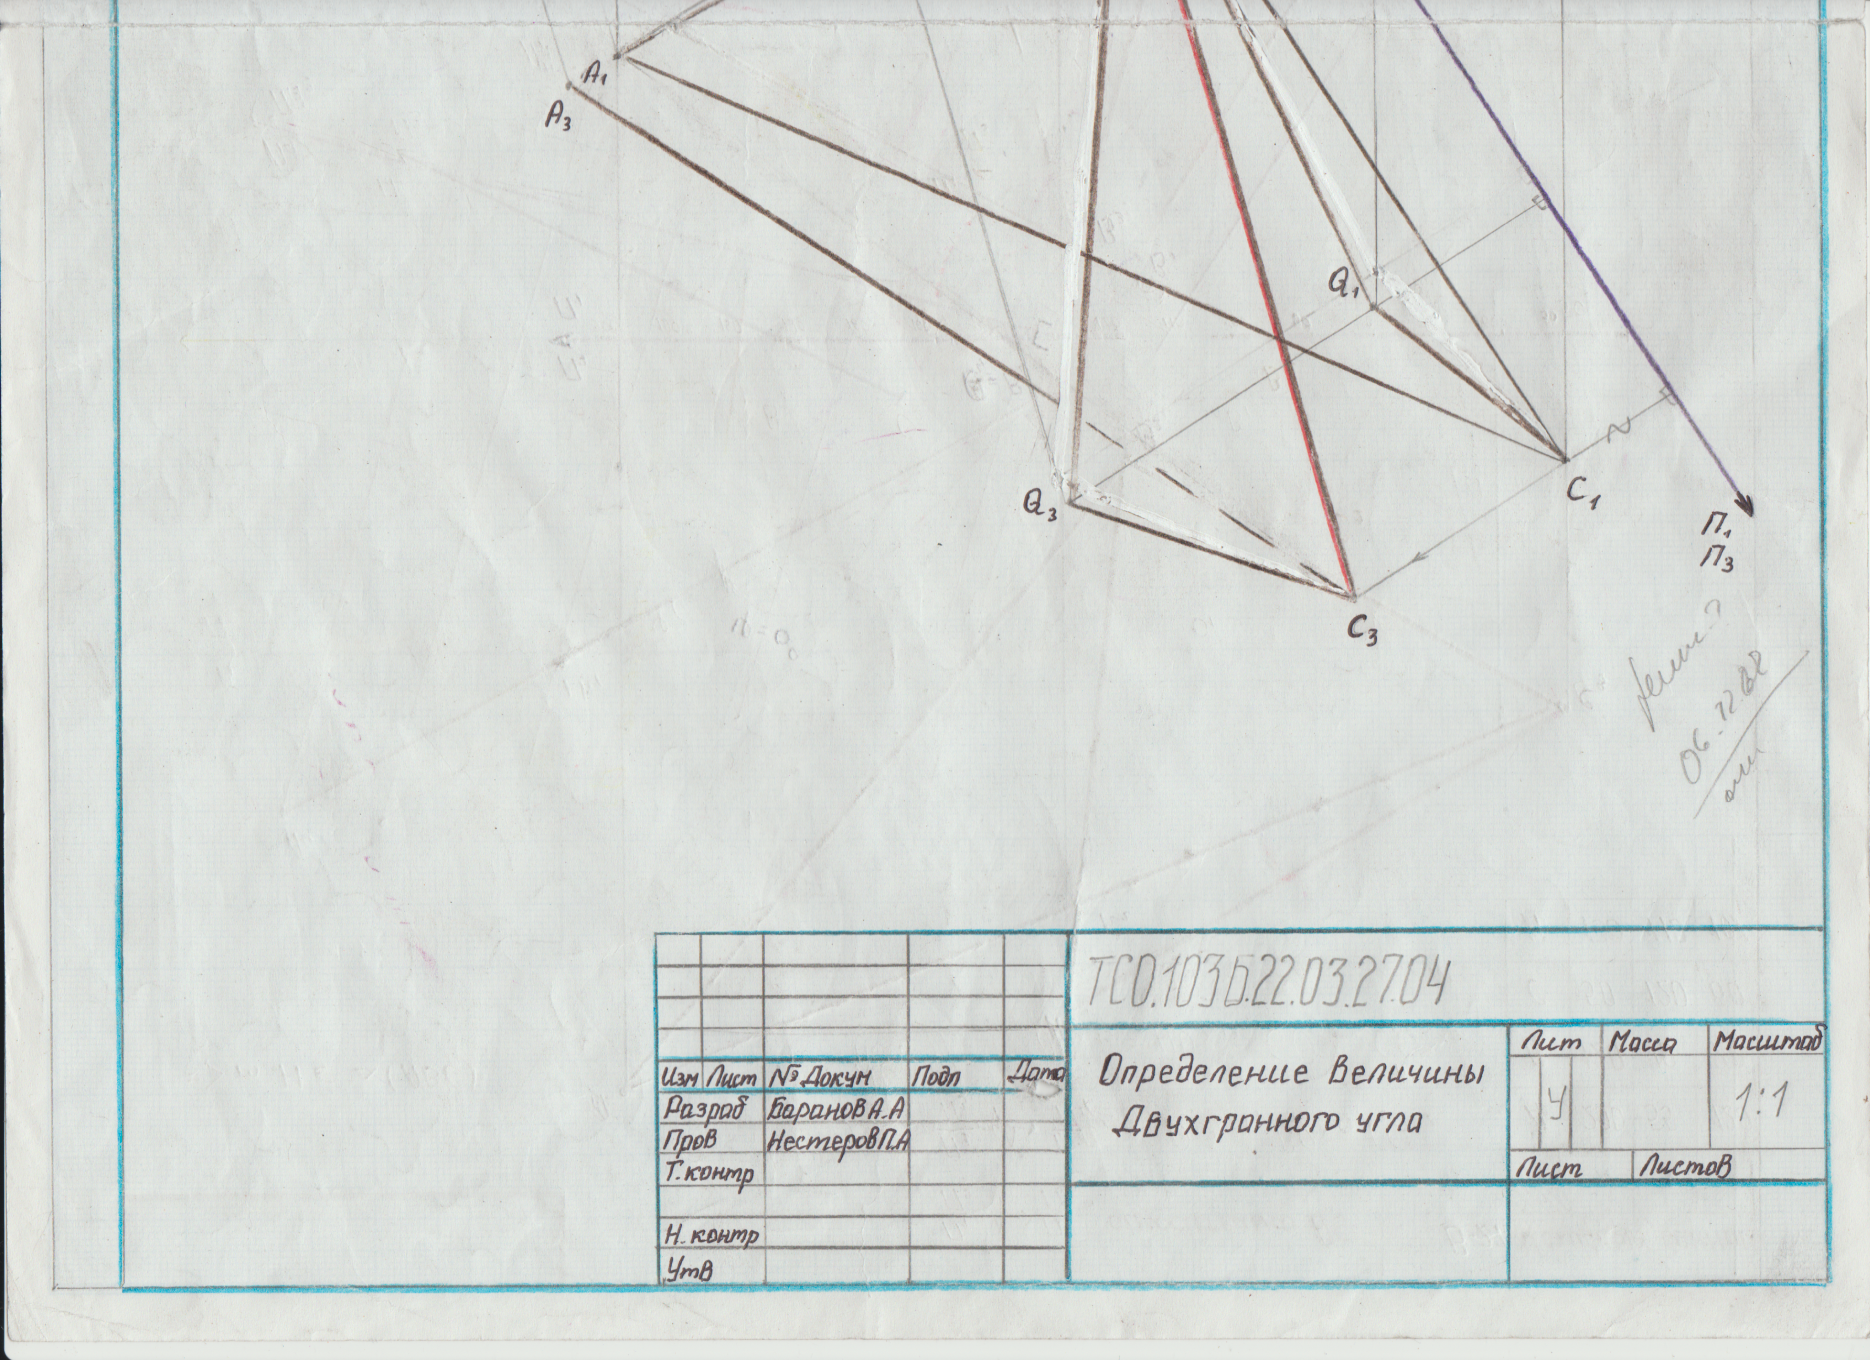 А₁
А₃
Q₁
Q₃
С₁
С₃
П₁
П₃
06.12.
ТСО.103Б.22.03.27.04
Изм Лист №Докум Подп Дата
Разраб Баранов А.А
Пров Нестеров П.А
Т.контр
Н.контр
Утв
Определение величины
Двухгранного угла
Лит Масса Масштаб
У 1:1
Лист Листов